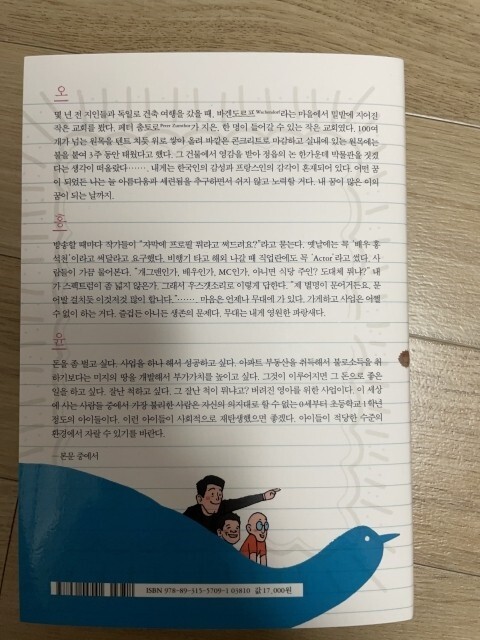 오
몇 년 전 지인들과 독일로 건축 여행을 갔을 때, 바겐도르프Wachendorf라는 마을에서 밀밭에 지어진
작은 교회를 봤다. 페터 춤토르Peter Zumthor가 지은, 한 명이 들어갈 수 있는 작은 교회였다. 100여
개가 넘는 원목을 텐트 치듯 위로 쌓아 올려 바깥은 콘크리트로 마감하고 실내에 있는 원목에는
불을 붙여 3주 동안 태웠다고 했다. 그 건물에서 영감을 받아 정읍의 논 한가운데 박물관을 짓겠
다는 생각이 떠올랐다……. 내게는 한국인의 감성과 프랑스인의 감각이 혼재되어 있다. 어떤 꿈
이 되었든 나는 늘 아름다움과 세련됨을 추구하면서 쉬지 않고 노력할 거다. 내 꿈이 많은 이의
꿈이 되는 날까지.
홍
방송할 때마다 작가들이 “자막에 프로필 뭐라고 써드려요?”라고 묻는다. 옛날에는 꼭 ‘배우 홍
석천’이라고 써달라고 요구했다. 비행기 타고 해외 나갈 때 직업란에도 꼭 ‘Actor’라고 썼다. 사
람들이 가끔 물어본다. “개그맨인가, 배우인가, MC인가, 아니면 식당 주인? 도대체 뭐냐?” 내
가 스펙트럼이 좀 넓지 않은가. 그래서 우스갯소리로 이렇게 답한다. “제 별명이 문어거든요, 문
어발 걸치듯 이것저것 많이 합니다.”……. 마음은 언제나 무대에 가 있다. 가게하고 사업은 어쩔
수 없이 하는 거다. 즐겁든 아니든 생존의 문제다. 무대는 내게 영원한 파랑새다.
윤
돈을 좀 벌고 싶다. 사업을 하나 해서 성공하고 싶다. 아파트 부동산을 취득해서 불로소득을 취
하기보다는 미지의 땅을 개발해서 부가가치를 높이고 싶다. 그것이 이루어지면 그 돈으로 좋은
일을 하고 싶다. 잘난 척하고 싶다. 그 잘난 척이 뭐냐고? 버려진 영아를 위한 사업이다. 이 세상
에 사는 사람들 중에서 가장 불리한 사람은 자신의 의지대로 할 수 없는 0세부터 초등학교 1학년
정도의 아이들이다. 이런 아이들이 사회적으로 재탄생했으면 좋겠다. 아이들이 적당한 수준의
환경에서 자랄 수 있기를 바란다.
—본문 중에서
ISBN 978-89-315-5709-1 03810 값 17,000원